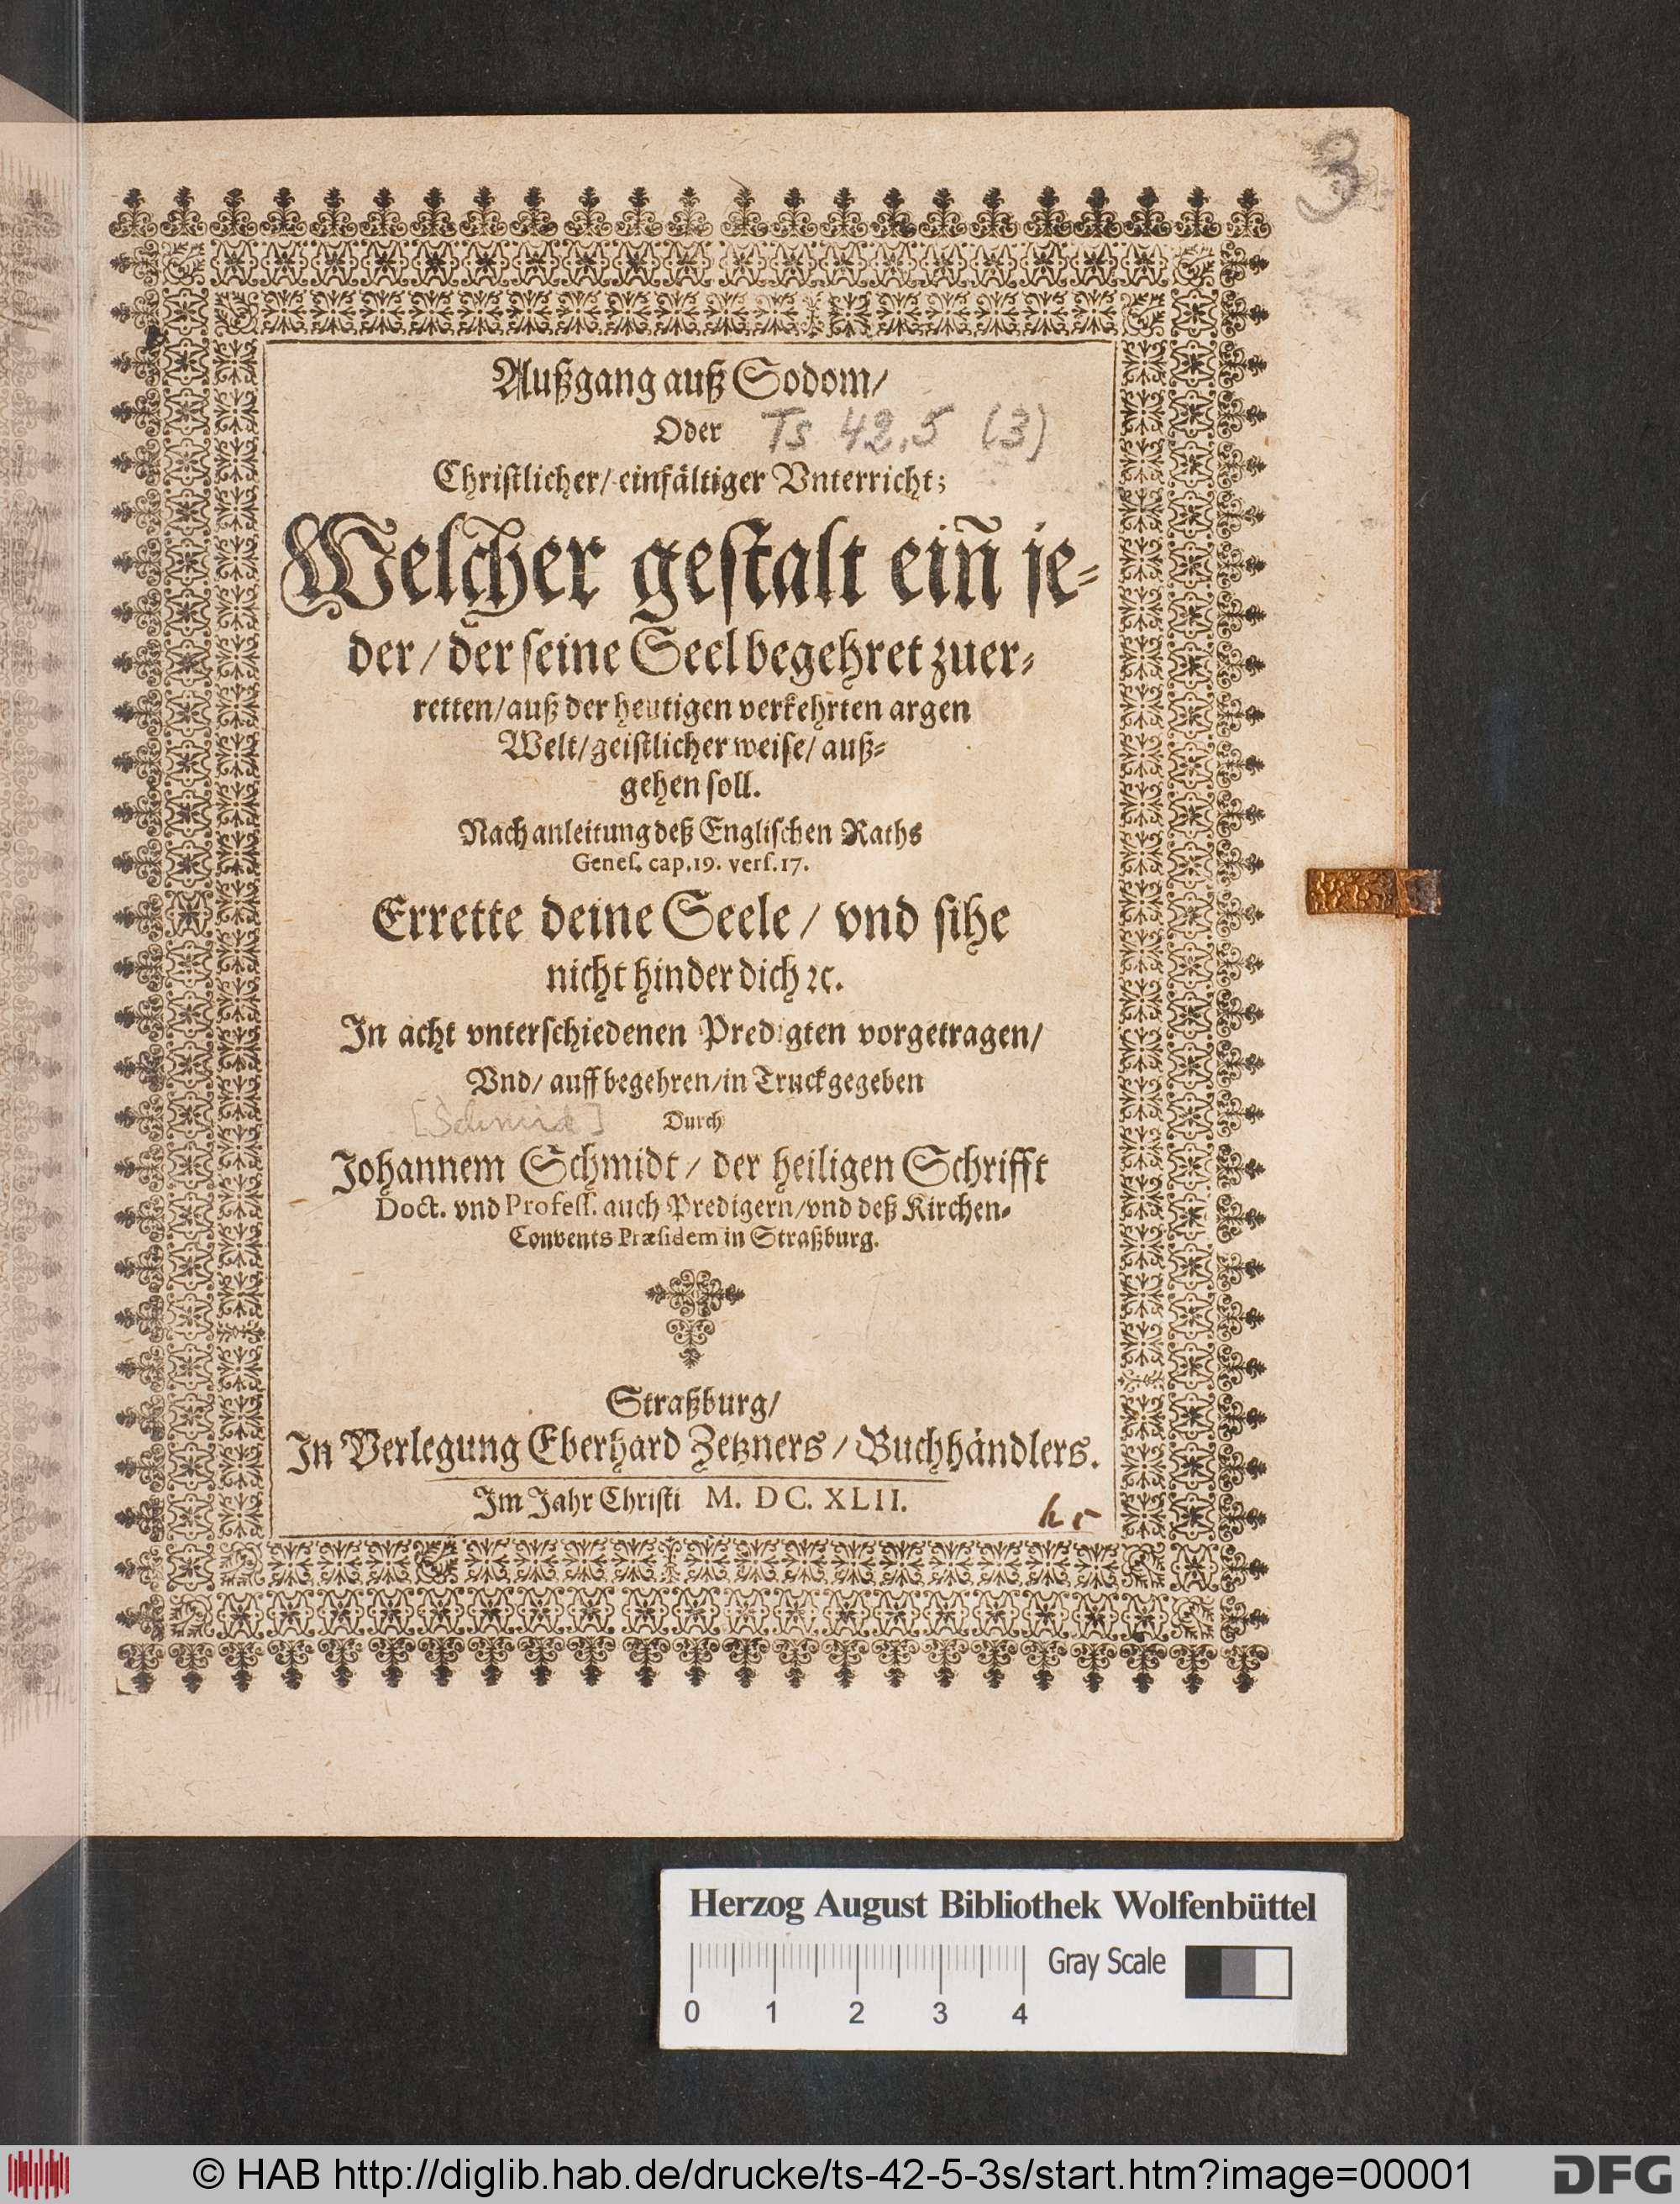 3
Außgang auß Sodom/
Oder Ts 42,5 (3)
Christlicher/ einfältiger Vnterricht;
Welcher gestalt ein̄ je-
der/ der seine Seel begehret zuer-
retten/ auß der heutigen verkehrten argen
Welt/ geistlicher weise/ auß-
gehen soll.
Nach anleitung deß Englischen Raths
Genes. cap. 19. vers. 17.
Errette deine Seele/ vnd sihe
nicht hinder dich ꝛc.
In acht vnterschiedenen Predigten vorgetragen/
Vnd/ auff begehren/ in Truck gegeben
[Schmid] Durch
Johannem Schmidt/ der heiligen Schrifft
Doct. vnd Profess. auch Predigern/ vnd deß Kirchen-
Convents Præsidem in Straßburg.
Straßburg/
In Verlegung Eberhard Zetzners/ Buchhändlers.
Im Jahr Christi M. DC. XLII.
Herzog August Bibliothek Wolfenbüttel
Gray Scale
0 1 2 3 4
© HAB http://diglib.hab.de/drucke/ts-42-5-3s/start.htm?image=00001
DFG